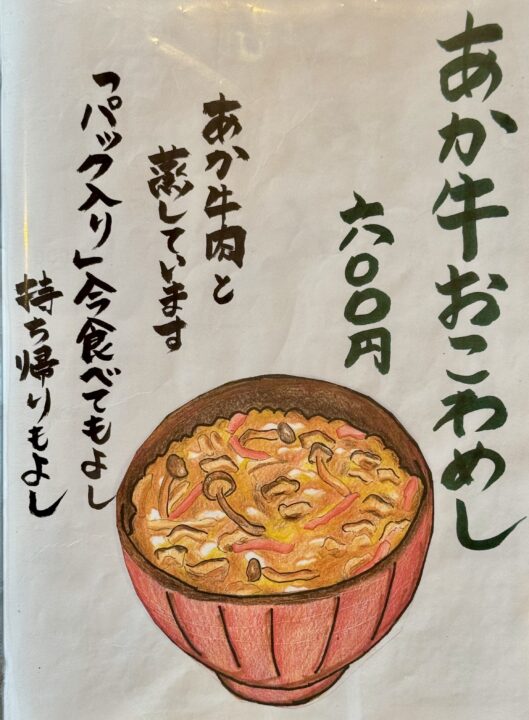 あか牛おこわめし
六〇〇円
あか牛肉と
蒸しています
「パック入り」今食べてもよし
持ち帰りもよし